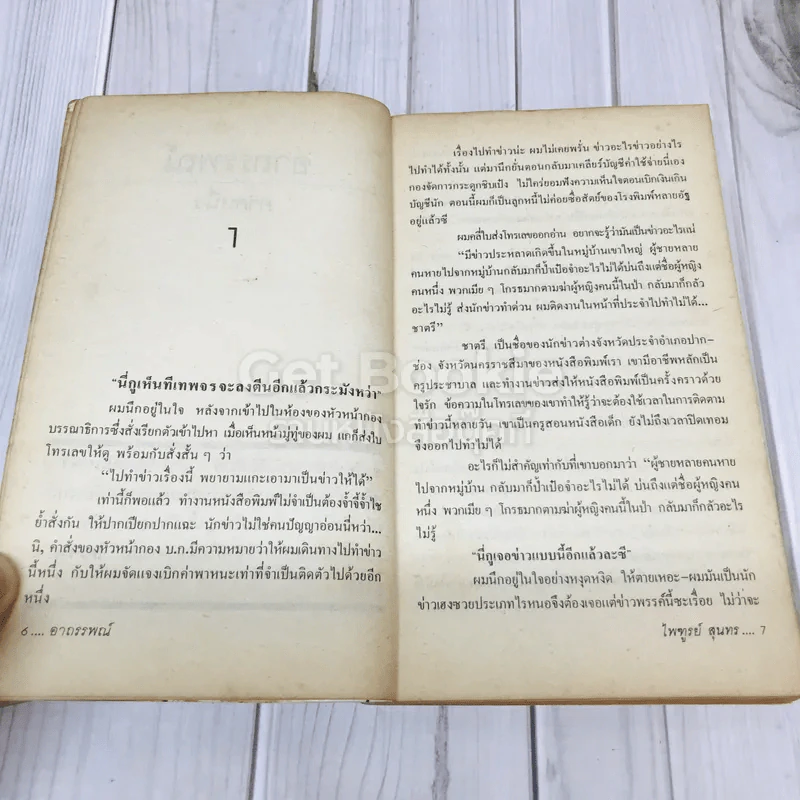 ๑
"นี่กูเห็นทีเทพจรจะลงตีนอีกแล้วกระมังหว่า"
ผมนึกอยู่ในใจ หลังจากเข้าไปในห้องของหัวหน้ากอง
บรรณาธิการซึ่งสั่งเรียกตัวเข้าไปหา เมื่อเห็นหน้ามู่ทู่ของผม แกก็ส่งใบ
โทรเลขให้ดู พร้อมกับสั่งสั้น ๆ ว่า
"ไปทำข่าวเรื่องนี้ พยายามแกะเอามาเป็นข่าวให้ได้"
เท่านี้ก็พอแล้ว ทำงานหนังสือพิมพ์ไม่จำเป็นต้องจ้ำจี้จ้ำไช
ย้ำสั่งกัน ให้ปากเปียกปากแฉะ นักข่าวไม่ใช่คนปัญญาอ่อนนี่หว่า...
นิ, คำสั่งของหัวหน้ากอง บ.ก.มีความหมายว่าให้ผมเดินทางไปทำข่าว
นี้หนึ่ง กับให้ผมจัดแจงเบิกค่าพาหนะเท่าที่จำเป็นติดตัวไปด้วยอีก
หนึ่ง
6 .... อาถรรพณ์
เรื่องไปทำข่าวน่ะ ผมไม่เคยพรั่น ข่าวอะไรข่าวอย่างไร
ไปทำได้ทั้งนั้น แต่มานึกยั่นตอนกลับมาเคลียร์บัญชีค่าใช้จ่ายนี่เอง
กองจัดการกระดูกชิบเป๋ง ไม่ใคร่ยอมฟังความเห็นใจตอนเบิกเงินเกิน
บัญชีนัก ตอนนี้ผมก็เป็นลูกหนี้ไม่ค่อยซื่อสัตย์ของโรงพิมพ์หลายอัฐ
อยู่แล้วซี
ผมคลี่ใบส่งโทรเลขออกอ่าน อยากจะรู้ว่ามันเป็นข่าวอะไรแน่
"มีข่าวประหลาดเกิดขึ้นในหมู่บ้านเขาใหญ่ ผู้ชายหลาย
คนหายไปจากหมู่บ้านกลับมาก็ป้ำเป๋อจำอะไรไม่ได้บ่นถึงแต่ชื่อผู้หญิง
คนหนึ่ง พวกเมีย ๆ โกรธมากตามฆ่าผู้หญิงคนนี้ในป่า กลับมาก็กลัว
อะไรไม่รู้ ส่งนักข่าวทำด่วน ผมติดงานในหน้าที่ประจำไปทำไม่ได้...
ชาตรี"
ชาตรี เป็นชื่อของนักข่าวต่างจังหวัดประจำอำเภอปาก-
ช่อง จังหวัดนครราชสีมาของหนังสือพิมพ์เรา เขามีอาชีพหลักเป็น
ครูประชาบาล และทำงานข่าวส่งให้หนังสือพิมพ์เป็นครั้งคราวด้วย
ใจรัก ข้อความในโทรเลขของเขาทำให้รู้ว่าจะต้องใช้เวลาในการติดตาม
ทำข่าวนี้หลายวัน เขาเป็นครูสอนหนังสือเด็ก ยังไม่ถึงเวลาปิดเทอม
จึงออกไปทำไม่ได้
อะไรก็ไม่สำคัญเท่ากับที่เขาบอกมาว่า "ผู้ชายหลายคนหาย
ไปจากหมู่บ้าน กลับมาก็ป้ำเป๋อจำอะไรไม่ได้ บ่นถึงแต่ชื่อผู้หญิงคน
หนึ่ง พวกเมีย ๆ โกรธมากตามฆ่าผู้หญิงคนนี้ในป่า กลับมาก็กลัวอะไร
ไม่รู้
"นี่กูเจอข่าวแบบนี้อีกแล้วละซี"
ผมนึกอยู่ในใจอย่างหงุดหงิด ให้ตายเหอะ-ผมมันเป็นนัก
ข่าวเฮงซวยประเภทไรหนอจึงต้องเจอแต่ข่าวพรรค์นี้ซะเรื่อย ไม่ว่าจะ
ไพฑูรย์ สุนทร .... 7
Get Bookie